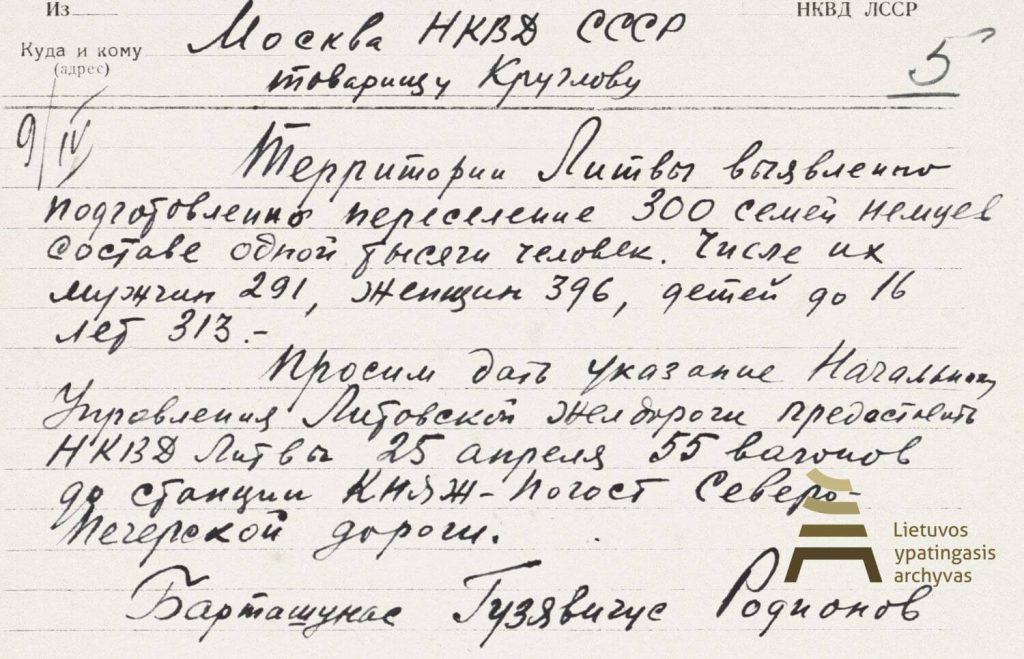 Из
НКВД ЛССР
Куда и кому
(адрес)
Москва НКВД СССР
товарищу Круглову
5
9/IV
Территории Литвы выявленно
подготовленно переселение 300 семей немцев
составе одной тысячи человек. Числе их
мужчин 291, женщин 396, детей до 16
лет 313.-
Просим дать указание Начальнику
Управления Литовской желдороги предоставить
НКВД Литвы 25 апреля 55 вагонов
до станции Княж-Погост Северо-
Печерской дороги.
Барташунас Гузявичус Родионов
Lietuvos
ypatingasis
archyvas